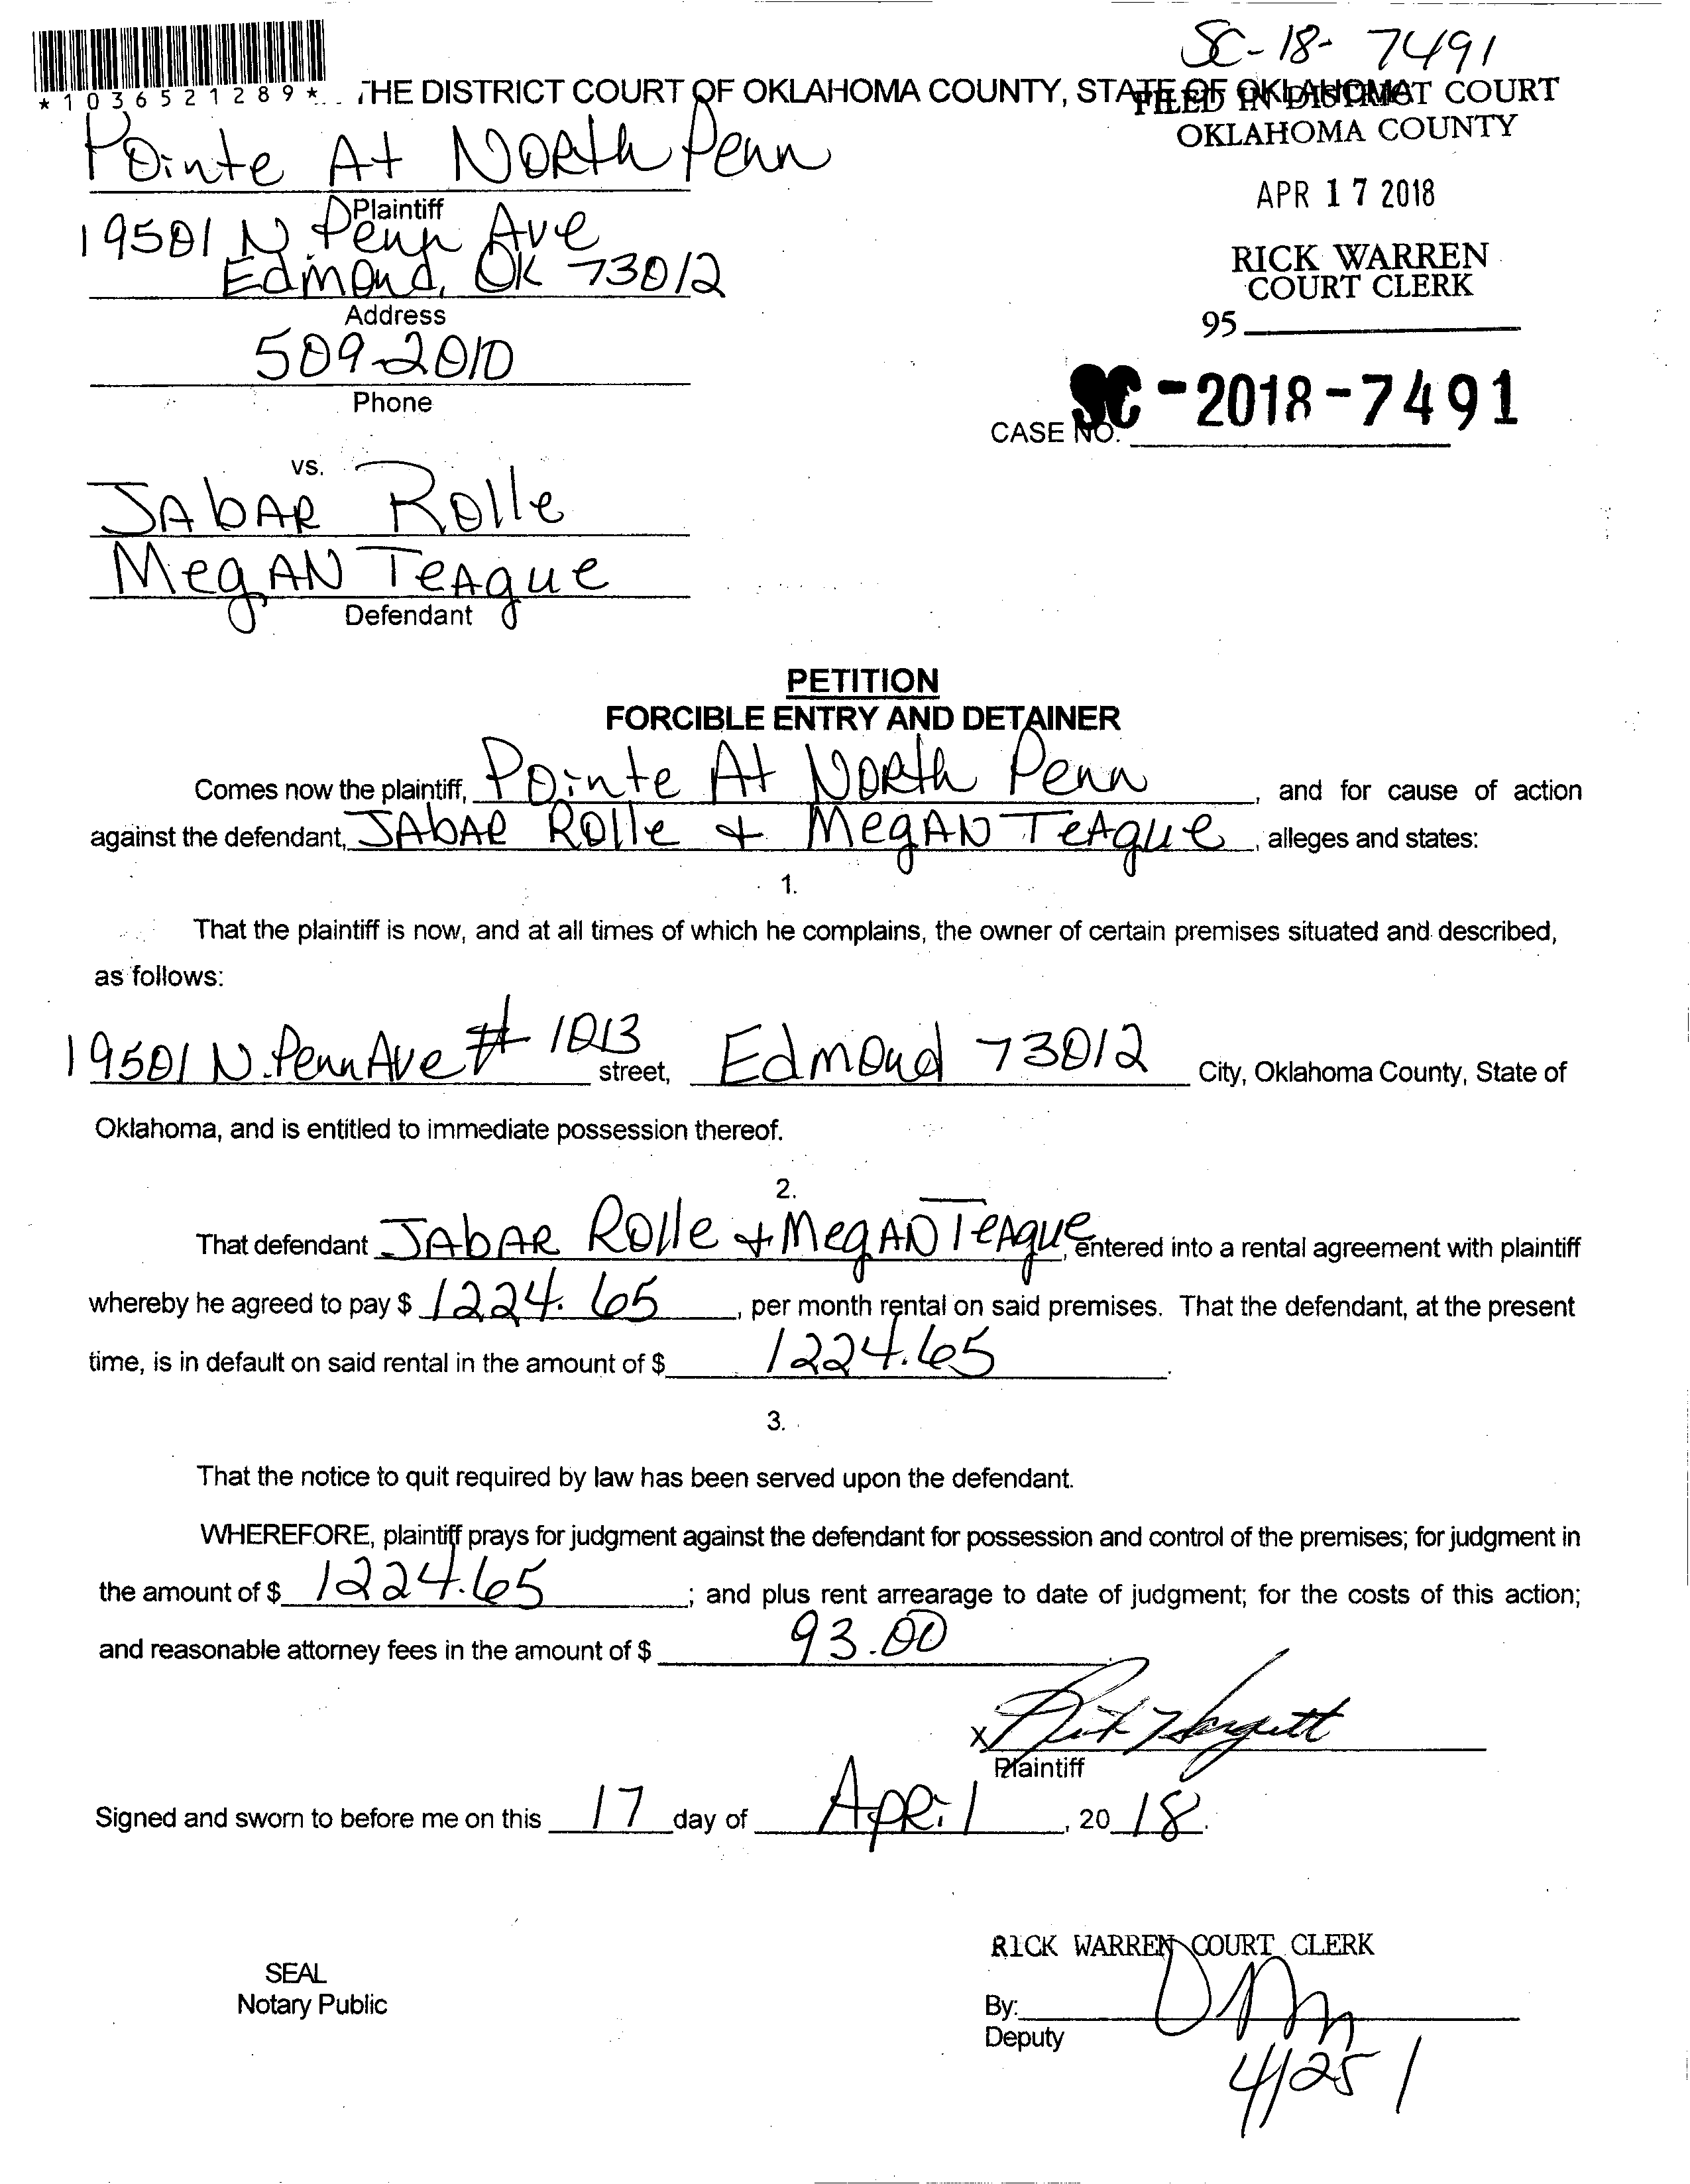 SC-18-7491
*1036521289*
THE DISTRICT COURT OF OKLAHOMA COUNTY, STATE OF OKLAHOMA
FILED IN DISTRICT COURT
OKLAHOMA COUNTY
Pointe At North Penn
Plaintiff
APR 17 2018
19501 N Penn Ave
Edmond, OK 73012
Address
RICK WARREN
COURT CLERK
95
509-2010
Phone
CASE NO. SC-2018-7491
vs.
JAbAR Rolle
MegAN TeAgue
Defendant
PETITION
FORCIBLE ENTRY AND DETAINER
Comes now the plaintiff, Pointe At North Penn, and for cause of action
against the defendant, JAbAR Rolle + MegAN TeAgue, alleges and states:
1.
That the plaintiff is now, and at all times of which he complains, the owner of certain premises situated and described,
as follows:
19501 N. Penn Ave # 1013 street, Edmond 73012 City, Oklahoma County, State of
Oklahoma, and is entitled to immediate possession thereof.
2.
That defendant JAbAR Rolle + MegAN TeAgue, entered into a rental agreement with plaintiff
whereby he agreed to pay $ 1224.65, per month rental on said premises. That the defendant, at the present
time, is in default on said rental in the amount of $ 1224.65.
3.
That the notice to quit required by law has been served upon the defendant.
WHEREFORE, plaintiff prays for judgment against the defendant for possession and control of the premises; for judgment in
the amount of $ 1224.65; and plus rent arrearage to date of judgment; for the costs of this action;
and reasonable attorney fees in the amount of $ 93.00.
X
Plaintiff
Signed and sworn to before me on this 17 day of April, 20 18.
RICK WARREN COURT CLERK
SEAL
Notary Public
By:
Deputy
4/25